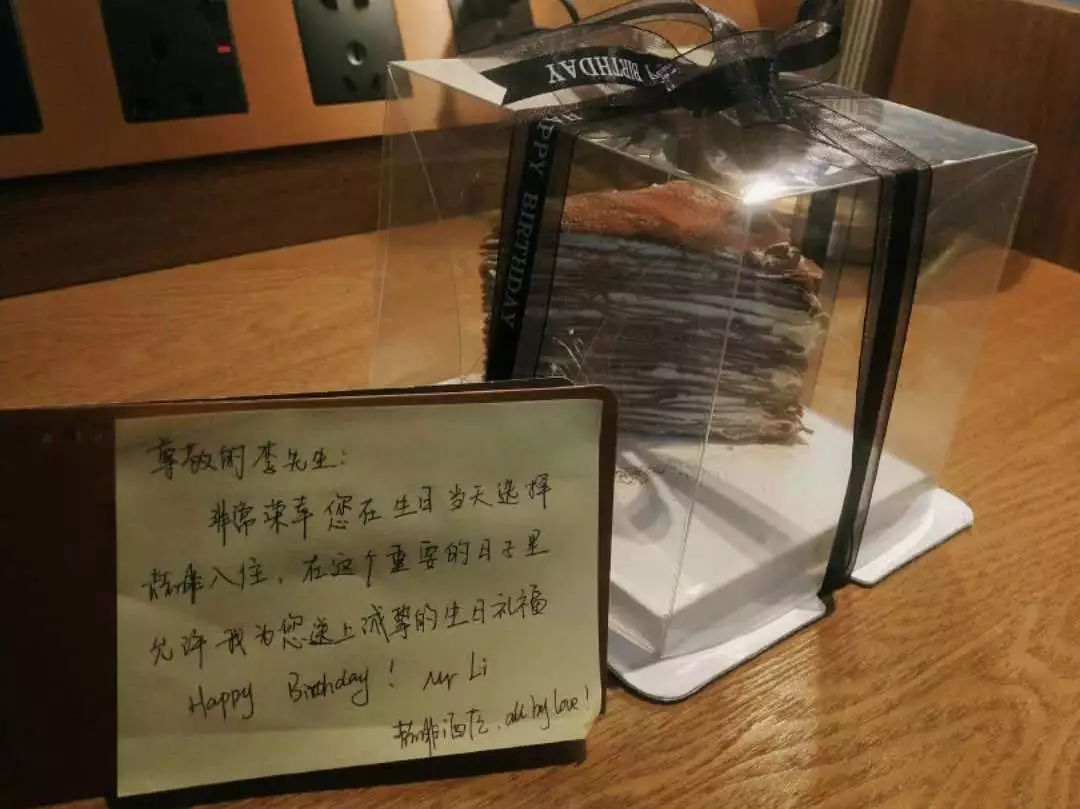 BIRTHDAY
HAPPY BIRTHDAY
尊敬的李先生:
非常荣幸您在生日当天选择
喆啡入住,在这个重要的日子里
允许我为您送上诚挚的生日礼福
Happy Birthday! Mr Li
喆啡酒店. all by love!